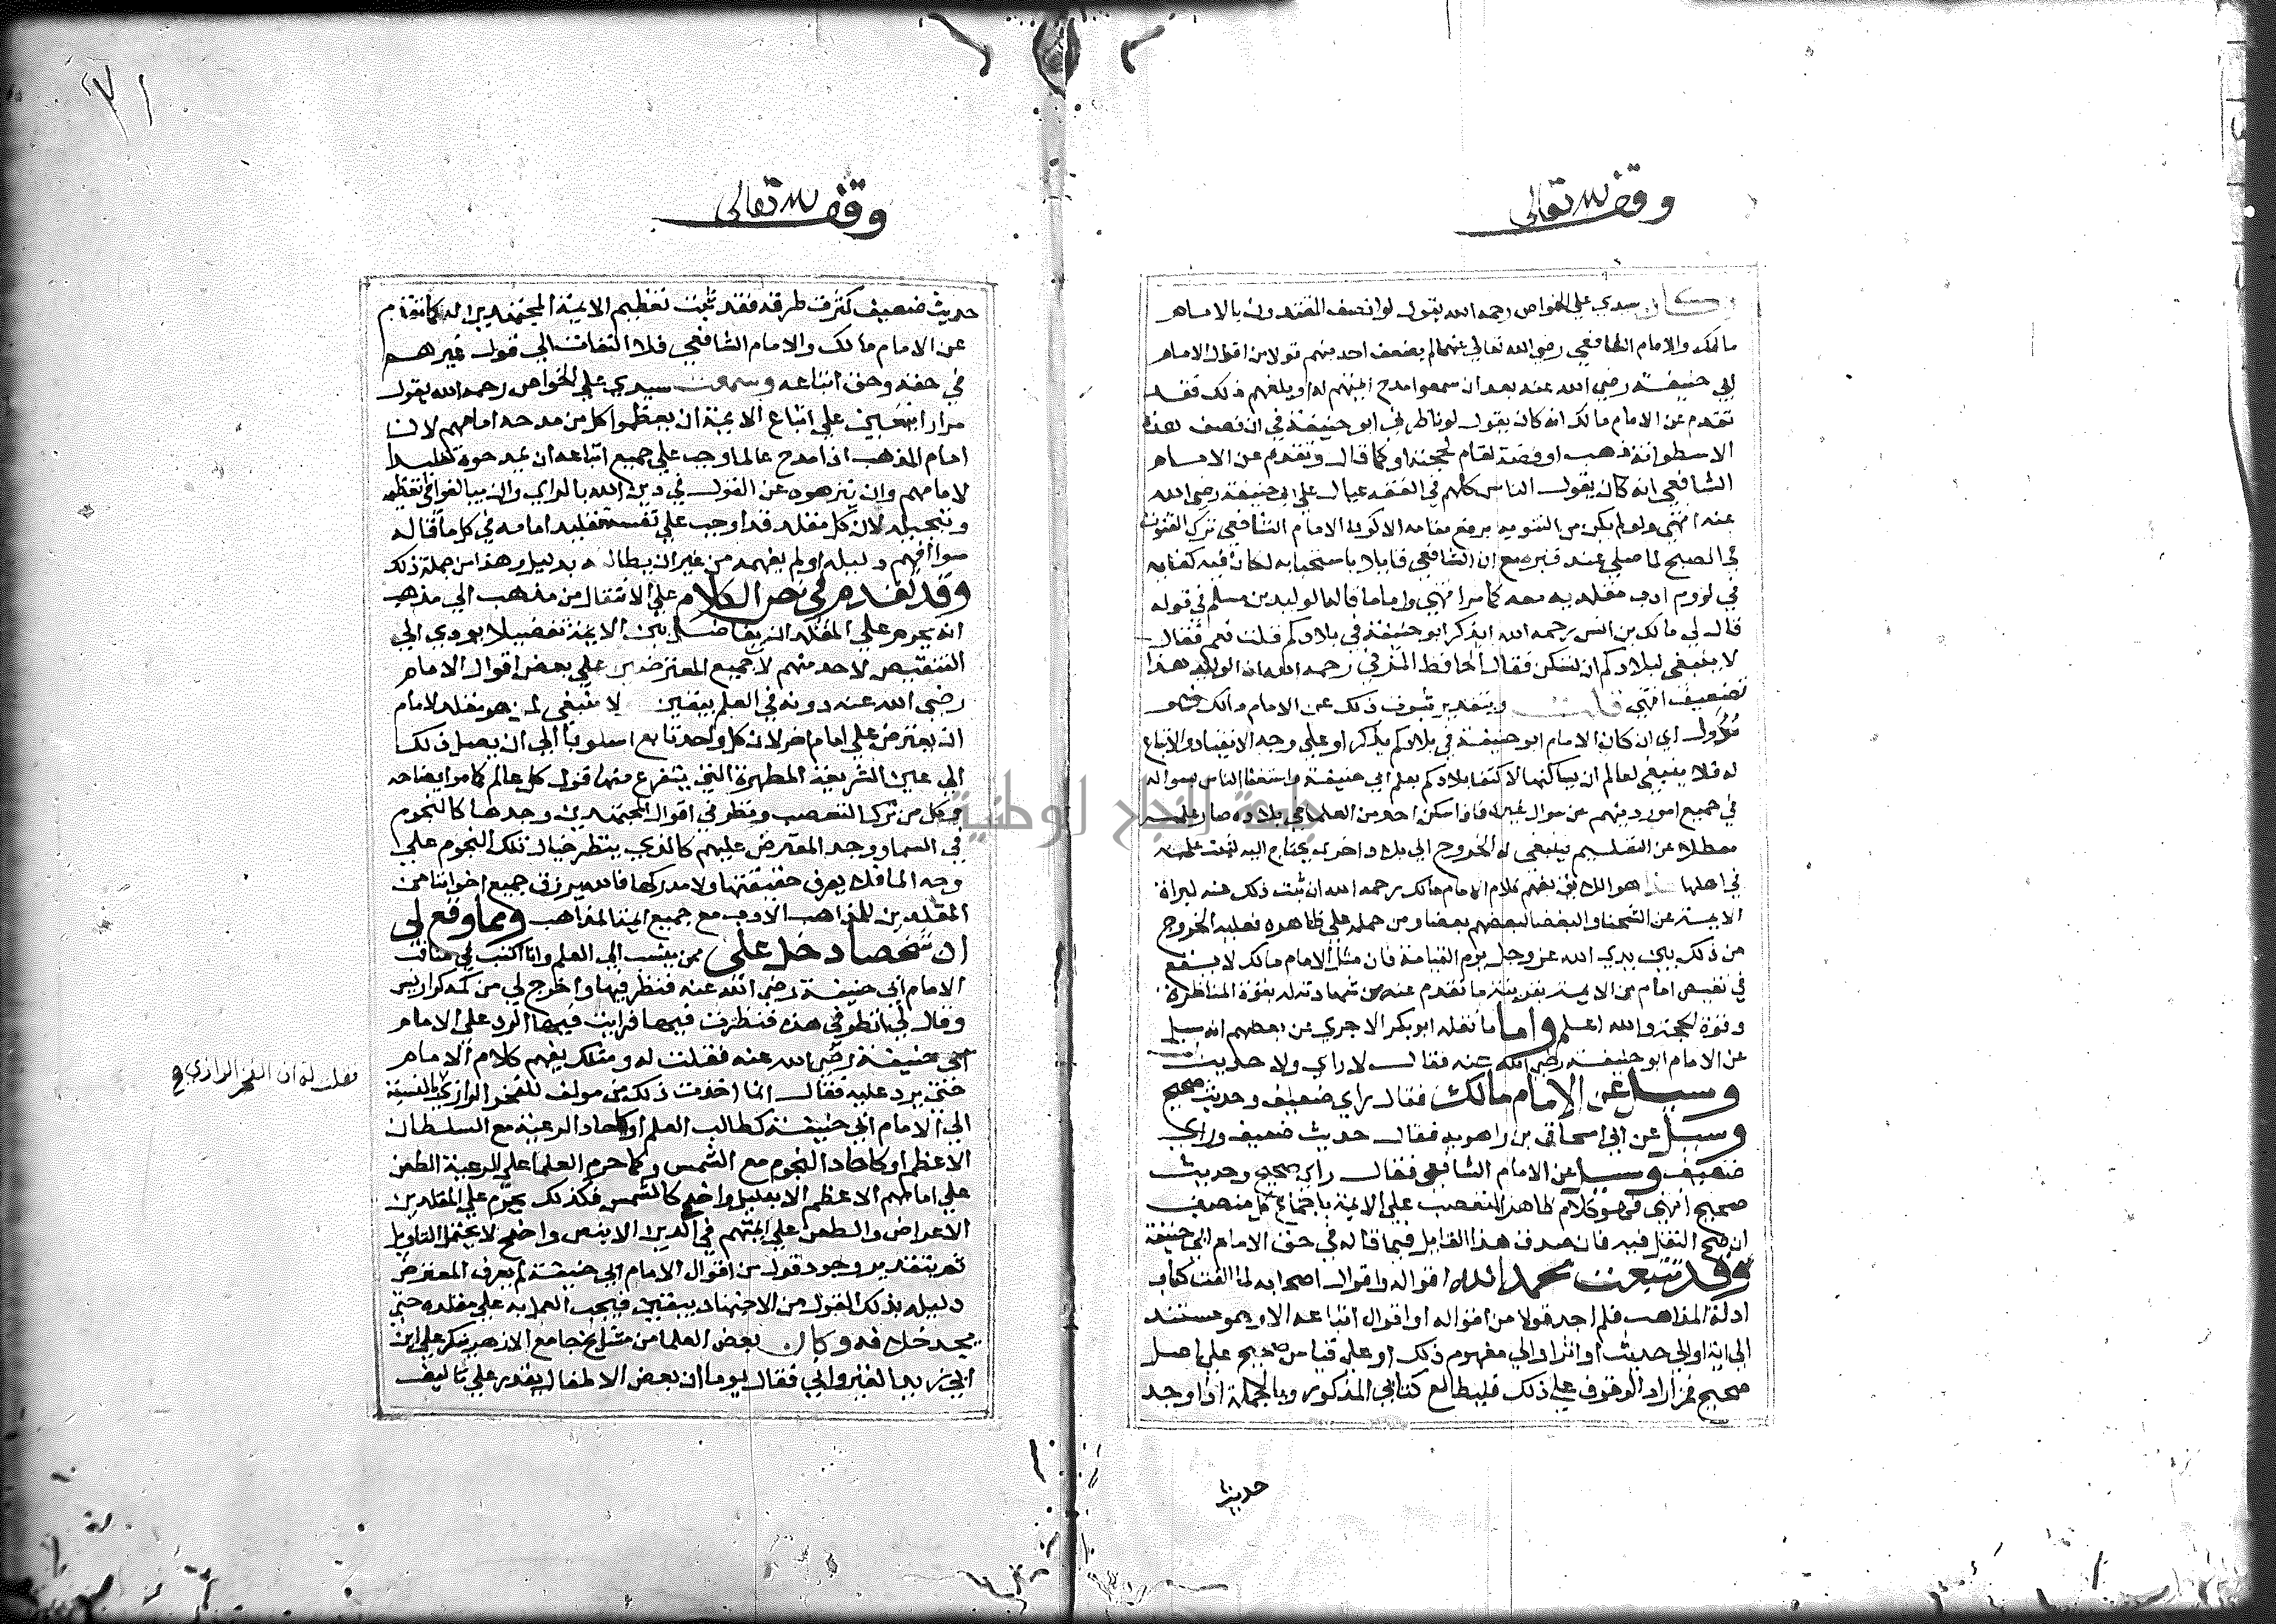 وقف لله تعالى
وكان سيدي علي الخواص رحمه الله يقول لو انصف المقلدون بالامام
مالك والامام الشافعي رضي الله تعالى عنهما لم يضعف احد منهم قولا من اقوال الامام
ابي حنيفة رضي الله عنه بعد ان سمعوا مدح ايمتهم له او بلغهم ذلك فقد
تقدم عن الامام مالك انه كان يقول لو ناظرني ابو حنيفة في ان نصف هذه
الاسطوانة ذهب او فضة لقام بحجته او كما قال وتقدم عن الامام
الشافعي انه كان يقول الناس كلهم في الفقه عيال على ابي حنيفة رضي الله
عنه انتهى ولو لم يكن من التنويه برفع مقامه الا كون الامام الشافعي ترك القنوت
في الصبح لما صلي عند قبره مع ان الشافعي قايلا باستحبابه لكان فيه كفاية
في لزوم ادب مقلديه معه كما مر انتهى واما ما قاله الوليد بن مسلم في قوله
قال لي مالك بن انس رحمه الله ايذكر ابو حنيفة في بلادكم قلت نعم فقال
لا ينبغي لبلادكم ان تسكن فقال الحافظ المزني رحمه الله ان الوليد هذا
ضعيف انتهى قلت وبتقدير ثبوت ذلك عن الامام مالك فهو
مؤول اي ان كان الامام ابو حنيفة في بلادكم يذكر اي على وجه الانقياد والاتباع
له فلا ينبغي لعالم ان يسكنها لاكتفا بلادكم بعلم ابي حنيفة واستغنا الناس بسواله
في جميع امور دينهم عن سوال غيره فاذا سكن احد من العلما في بلاده صار علمه
معطلا عن التعليم فينبغي له الخروج الى بلاد اخرى يحتاج اليه لبث علمه
في اهلها هذا هو اللائق بفهم كلام الامام مالك رحمه الله ان ثبت ذلك عنه لبراة
الايمة عن الشحنا والبغضا لبعضهم بعضا ومن حمله على ظاهره فعليه الخروج
من ذلك بين يدي الله عز وجل يوم القيامة فان مثل الامام مالك لا يقع
في تنقيص امام من الايمة بقرينة ما تقدم عنه من شهادته له بقوة المناظرة
وقوة الحجة والله اعلم واما ما نقله ابو بكر الاجري عن بعضهم انه سيل
عن الامام ابو حنيفة رضي الله عنه فقال لا راي ولا حديث
وسيل عن الامام مالك فقال راي ضعيف وحديث صحيح
وسيل عن ابي اسحاق بن راهويه فقال حديث ضعيف وراي
ضعيف وسيل عن الامام الشافعي فقال راي صحيح وحديث
صحيح انتهى فهو كلام ظاهر التعصب على الايمة باجماع كل منصف
ان صح النقل فيه فان صدق هذا القايل فيما قاله في حق الامام ابي حنيفة
وقد تتبعت بحمد الله اقواله واقوال اصحابه لما الفت كتاب
ادلة المذاهب فلم اجد قولا من اقواله او اقوال اتباعه الا وهو مستند
الى اية او الى حديث او اثر او الى مفهوم ذلك او على قياس صحيح على اصل
صحيح فمن اراد الوقوف على ذلك فليطالع كتابي المذكور وبالجملة اذا وجد
حديث
وقف لله تعالى
حديث ضعيف كثرت طرقه فقد ثبت تعظيم الايمة المجتهدين له كما تقدم
عن الامام مالك والامام الشافعي فلا التفات الى قول غيرهم
في حقه وحق اتباعه وسمعت سيدي علي الخواص رحمه الله يقول
مرارا يتعين على اتباع الايمة ان يعظموا كل من مدحه امامهم لان
امام المذهب اذا مدح عالما وجب على جميع اتباعه ان يمدحوه تقليدا
لامامهم وان ينزهوه عن القول في دين الله بالراي وان يبالغوا في تعظيمه
وتبجيله لان كل مقلد قد اوجب على نفسه تقليد امامه في كل ما قاله
سوا افهم دليله او لم يفهمه من غير ان يطالبه بدليل وهذا من جملة ذلك
وقد تقدم في نحر الكلام على الانتقال من مذهب الى مذهب
انه يحرم على المقلد ان يفاضل بين الايمة تفضيلا يودي الى
التنقيص لاحد منهم لان جميع المعترضين على بعض اقوال الامام
رضي الله عنه دونه في العلم بيقين لا ينبغي لمن هو مقلد لامام
ان يعترض على امام اخر لان كل واحد تابع اسلوبا الى ان يصل ذلك
الى عين الشريعة المطهرة التي يتفرع منها قول كل عالم كما مر ايضاحه
فكل من ترك التعصب ونظر في اقوال المجتهدين وجدها كالنجوم
في السما ووجد المعترض عليهم كالذي ينظر خيال تلك النجوم على
وجه الما فلا يعرف حقيقتها ولا مدركها فالله يرزق جميع اخواننا من
المقلدين للمذاهب الادب مع جميع ايمة المذاهب ومما وقع لي
ان شخصا دخل علي ممن ينسب الى العلم وانا اكتب في مناقب
الامام ابي حنيفة رضي الله عنه فنظر فيها واخرج لي من كمه كراريس
وقال لي انظر في هذه فنظرت فيها فرايت فيها الرد على الامام
ابي حنيفة رضي الله عنه فقلت له ومثلك يفهم كلام الامام
حتى يرد عليه فقال انما اخذت ذلك من مولف للفخر الرازي بالنسبة
فقلت له ان الفخر الرازي
الى الامام ابي حنيفة كطالب العلم او كاحاد الرعية مع السلطان
الاعظم او كاحاد النجوم مع الشمس وكما حرم العلما على الرعية الطعن
على امامهم الاعظم الا بدليل واضح كالشمس فكذلك يحرم على المقلدين
الاعراض والطعن على ايمتهم في الدين الا بنص واضح لا يحتمل التاويل
ثم بتقدير وجود قول من اقوال الامام ابي حنيفة لم يعرف المعترض
دليله بذلك القول من الاجتهاد بيقين فيجب العمل به على مقلده حتى
يجد خلافه وكان بعض العلما من مشايخ جامع الازهر ينكر على ابن
ابي زيد القيرواني فقال يوما ان بعض الاطفال يقدر على تاليف
جامعة النجاح الوطنية